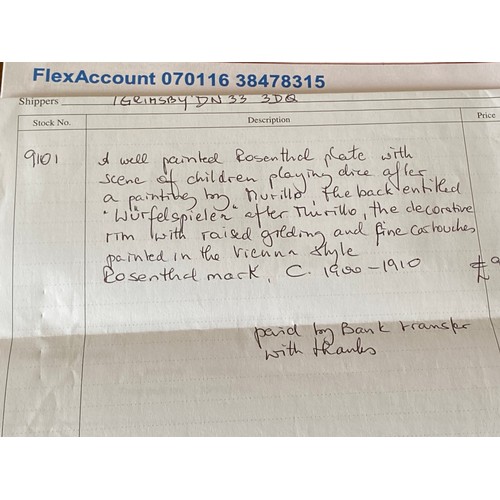 FlexAccount 070116 38478315
Shippers GRIMSBY DN33 3DQ
Stock No. Description Price
9101 A well painted Rosenthal plate with
scene of children playing dice after
a painting by Murillo, the back entitled
"Würfelspieler after Murillo, the decorative
rim with raised gilding and fine cartouches
painted in the Vienna style
Rosenthal mark, C. 1900-1910 £9
paid by Bank transfer
with thanks